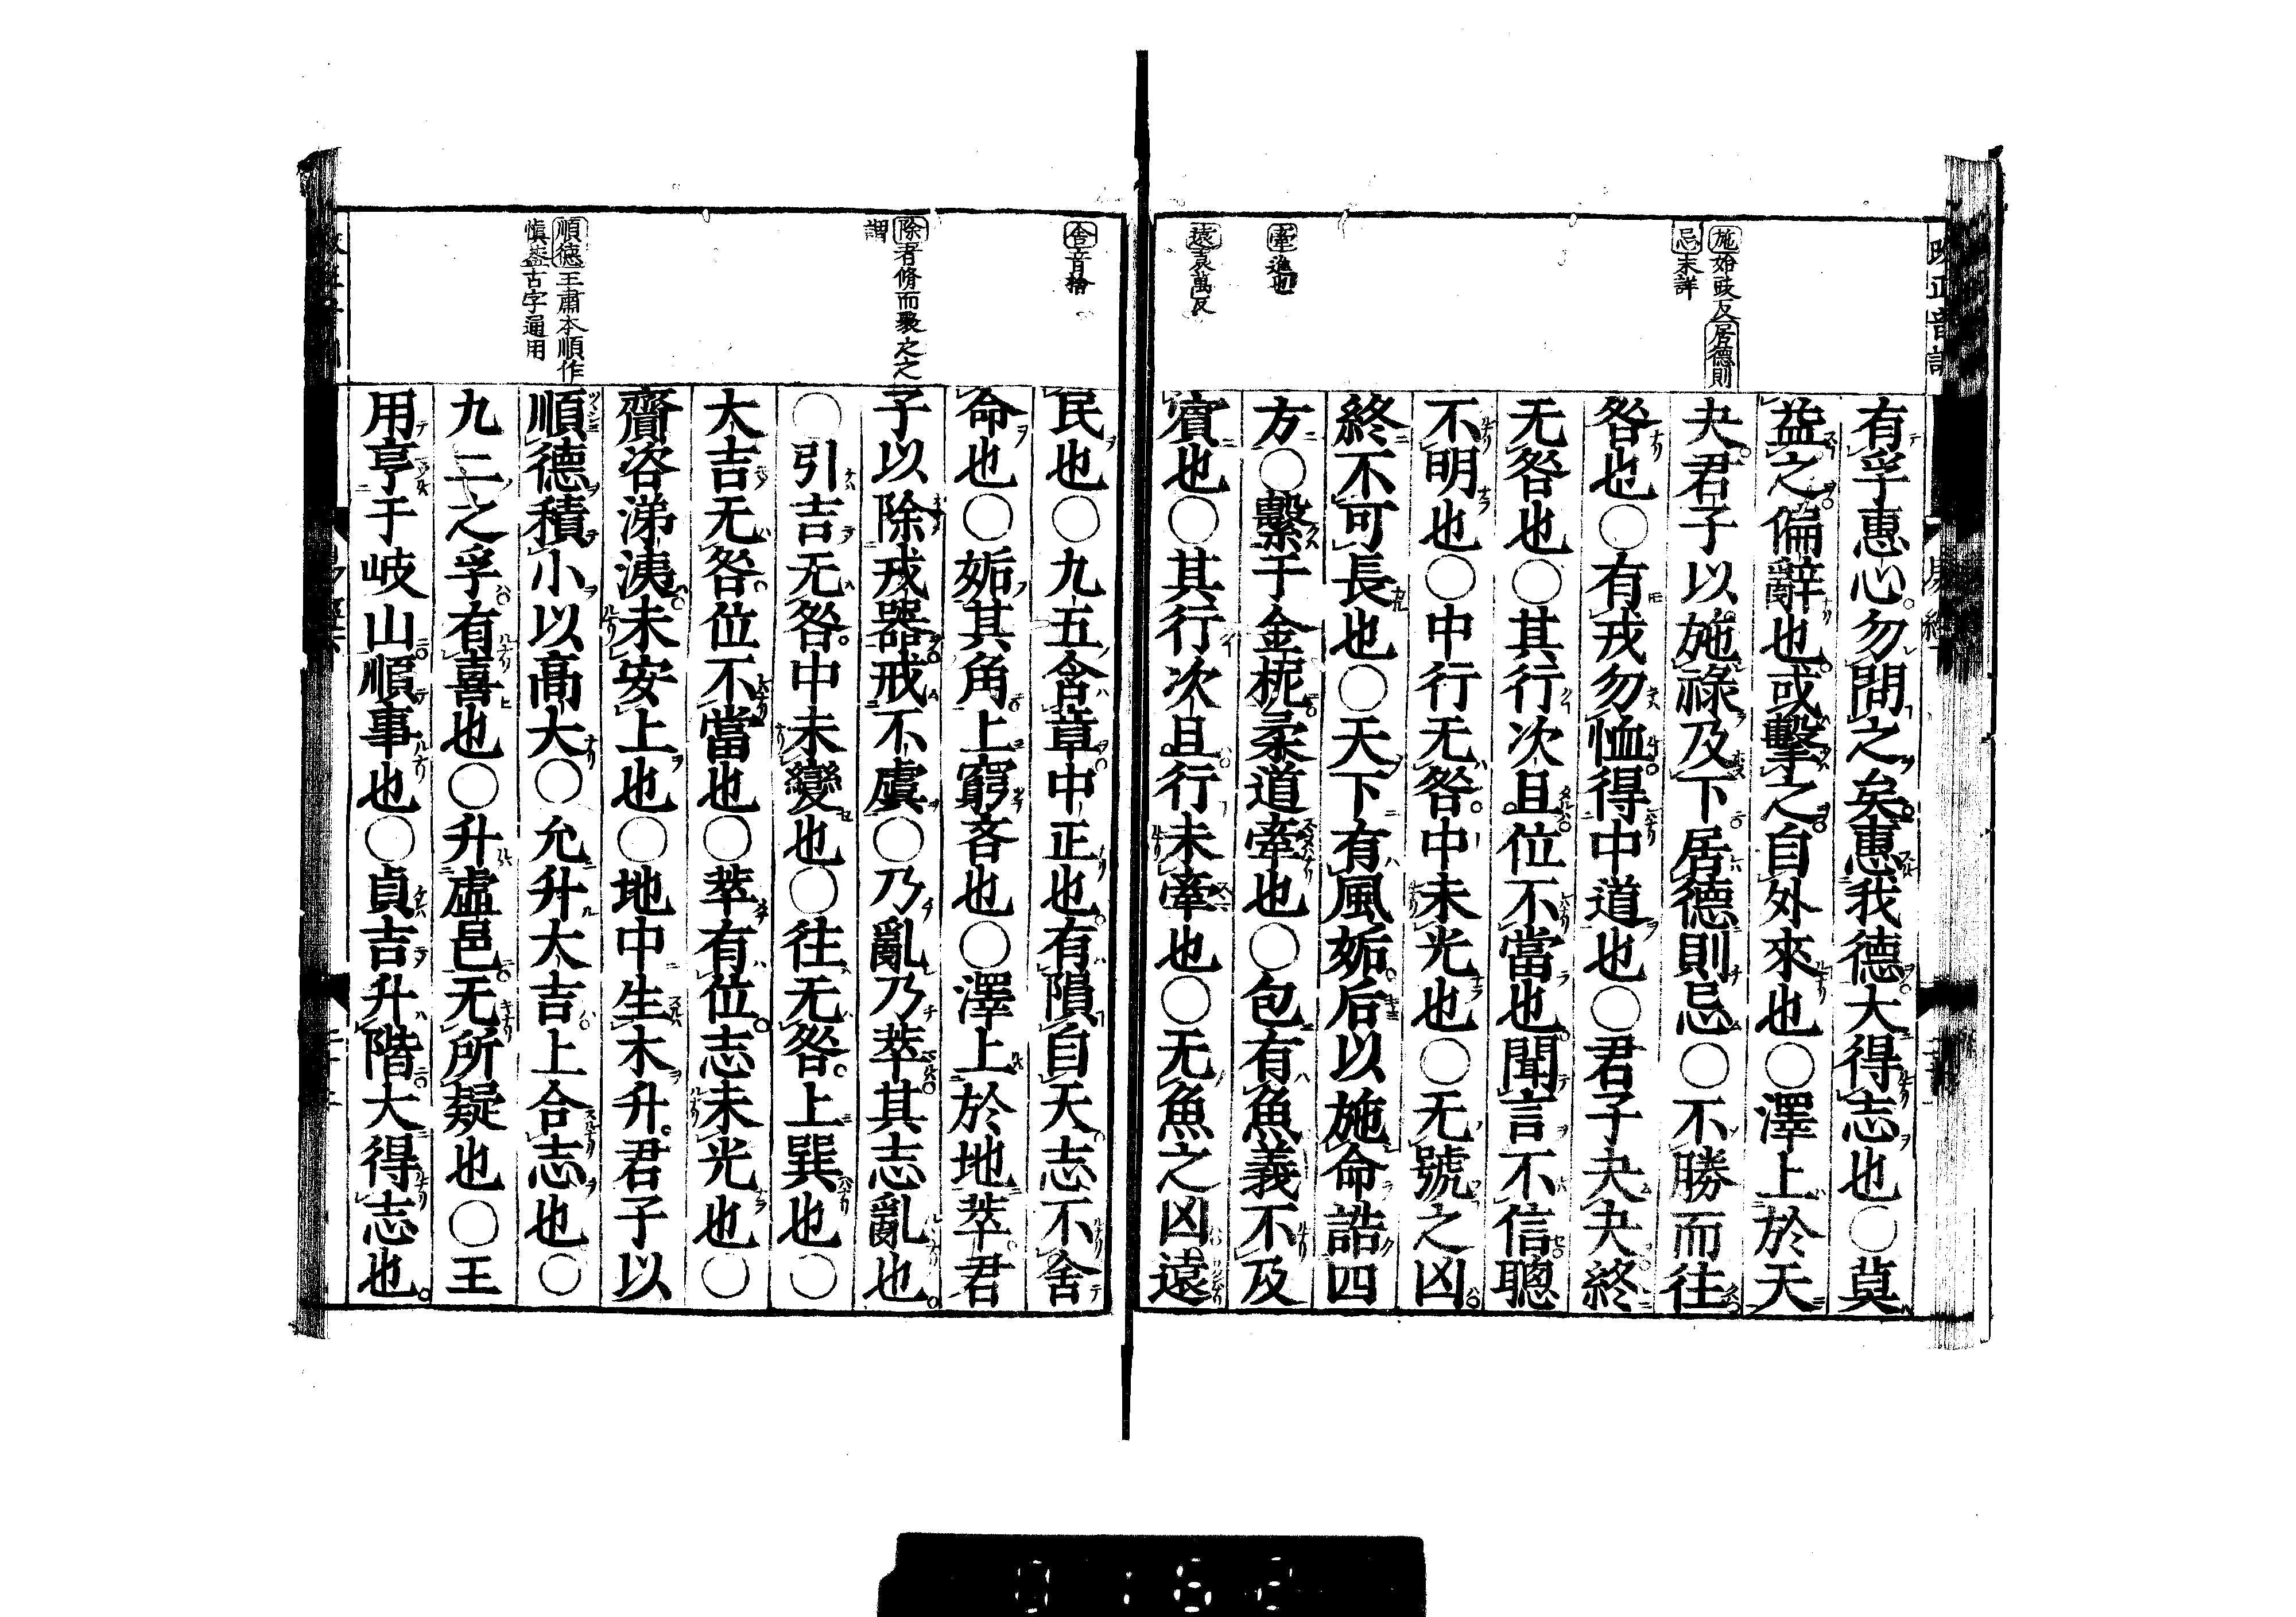 施始豉反居德則
忌未詳
牽進也
遠袁萬反
有孚惠心勿問之矣惠我德大得志也○莫
益之偏辭也或擊之自外來也○澤上於天
夬君子以施祿及下居德則忌○不勝而往
咎也○有戎勿恤得中道也○君子夬夬終
无咎也○其行次且位不當也聞言不信聰
不明也○中行无咎中未光也○无號之凶
終不可長也○天下有風姤后以施命誥四
方○繫于金柅柔道牽也○包有魚義不及
賓也○其行次且行未牽也○无魚之凶遠
舍音捨
除者脩而聚之之
謂
順德王肅本順作
愼蓋古字通用
民也○九五含章中正也有隕自天志不舍
命也○姤其角上窮吝也○澤上於地萃君
子以除戎器戒不虞○乃亂乃萃其志亂也
○引吉无咎中未變也○往无咎上巽也○
大吉无咎位不當也○萃有位志未光也○
齎咨涕洟未安上也○地中生木升君子以
順德積小以高大○允升大吉上合志也○
九二之孚有喜也○升虛邑无所疑也○王
用亨于岐山順事也○貞吉升階大得志也